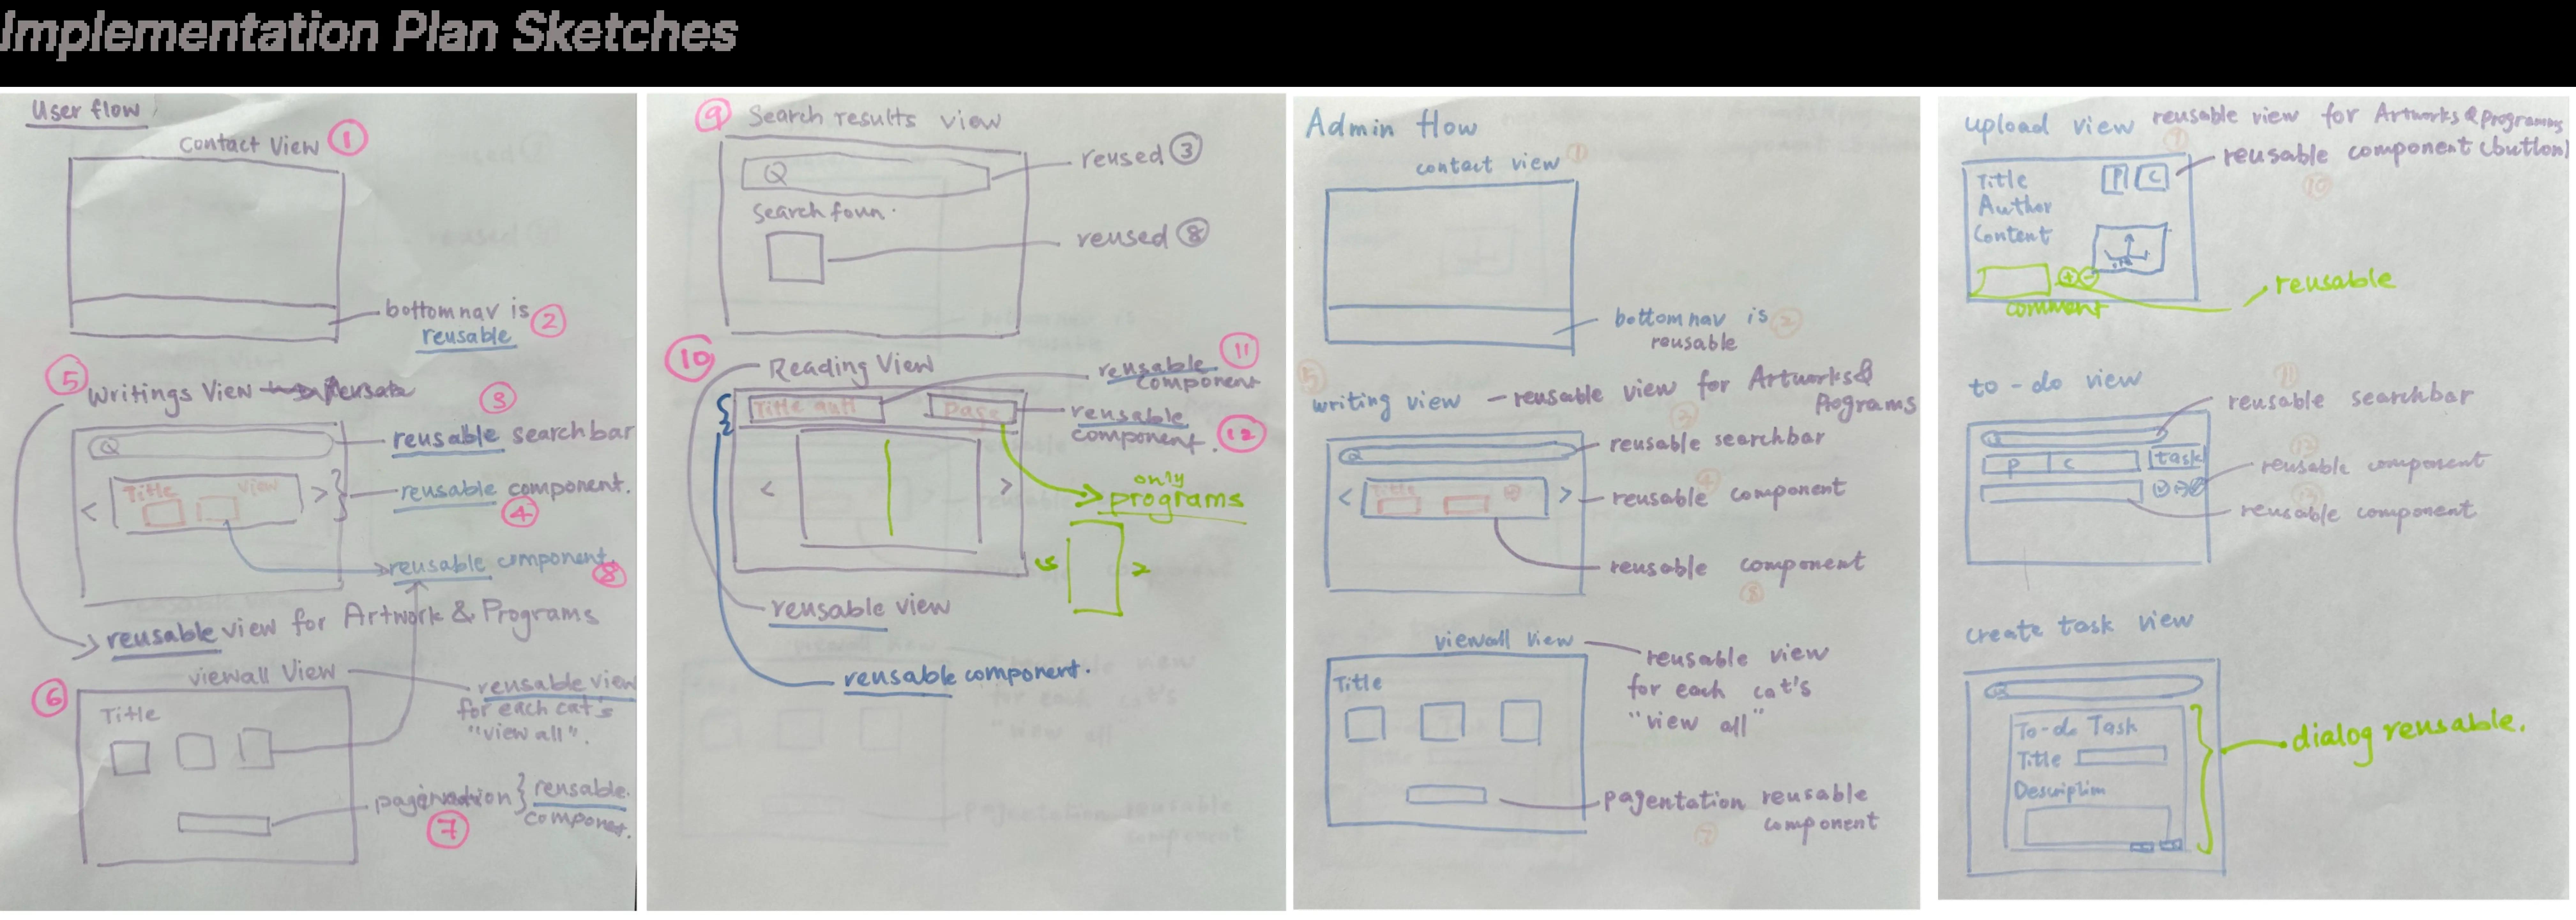 Implementation Plan Sketches
User flow
Contact View 1
bottom nav is 2
reusable
5 Writings View
3
reusable searchbar
Title view
reusable component.
4
reusable component 8
reusable view for Artwork & Programs
viewall View
6
reusable view
for each cat's
"view all".
Title
7
reusable
9 Search results view
Q
reused 3
Search foun.
reused 8
10 Reading View
reusable 11
component
Title auth
page
reusable
component. 12
only
programs
reusable view
reusable component.
Admin flow
contact view 1
bottom nav is 2
reusable
5
writing view – reusable view for Artworks &
Programs
3
reusable searchbar
Q
Title
4
reusable component
reusable component
8
viewall view
reusable view
for each cat's
"view all"
Title
pagentation reusable
component
7
upload view reusable view for Artworks & programs
reusable component (button)
10
Title
Author
Content
P C
reusable
comment
to-do view
11
reusable searchbar
Q
P C task
reusable component
reusable component
create task view
Q
To-do Task
Title
dialog reusable.